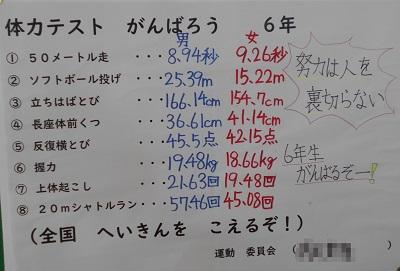 体力テスト がんばろう ６年
男 女
① ５０メートル走 ・・・8.94秒 9.26秒
② ソフトボール投げ ・・・25.39m 15.22m
③ 立ちはばとび ・・・166.14cm 154.7cm
④ 長座体前くつ ・・・36.61cm 41.14cm
⑤ 反復横とび ・・・45.5点 42.15点
⑥ 握力 ・・・19.48kg 18.66kg
⑦ 上体起こし ・・・21.63回 19.48回
⑧ ２０mシャトルラン・・・57.46回 45.08回
（全国 へいきんを こえるぞ！）
運動 委員会 （ ）
努力は人を
裏切らない
6年生
がんばるぞー!